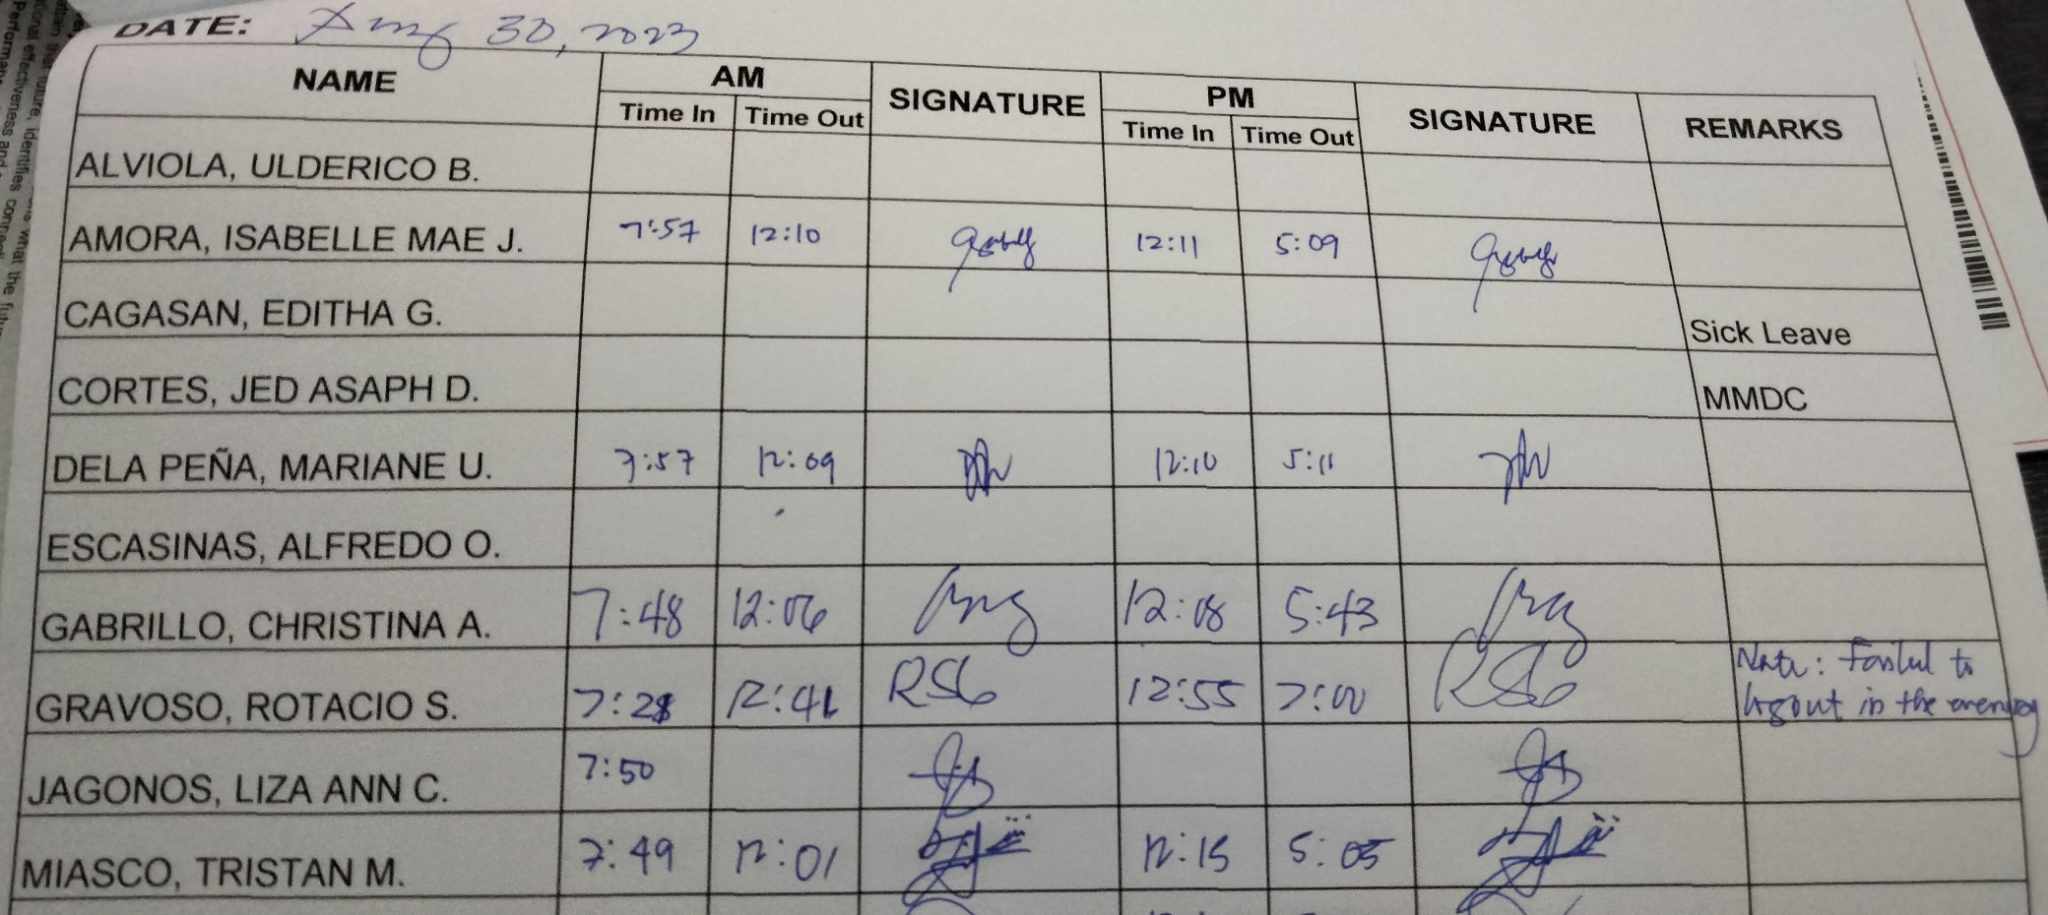 DATE: Aug 30, 2023
NAME AM SIGNATURE PM SIGNATURE REMARKS
Time In Time Out Time In Time Out
ALVIOLA, ULDERICO B.
AMORA, ISABELLE MAE J. 7:57 12:10 12:11 5:09
CAGASAN, EDITHA G. Sick Leave
CORTES, JED ASAPH D. MMDC
DELA PEÑA, MARIANE U. 7:57 12:09 12:10 5:11
ESCASINAS, ALFREDO O.
GABRILLO, CHRISTINA A. 7:48 12:06 12:08 5:43
GRAVOSO, ROTACIO S. 7:28 12:41 RSG 12:55 7:00 RSG Note: Failed to
logout in the evening
JAGONOS, LIZA ANN C. 7:50
MIASCO, TRISTAN M. 7:49 12:01 12:15 5:05